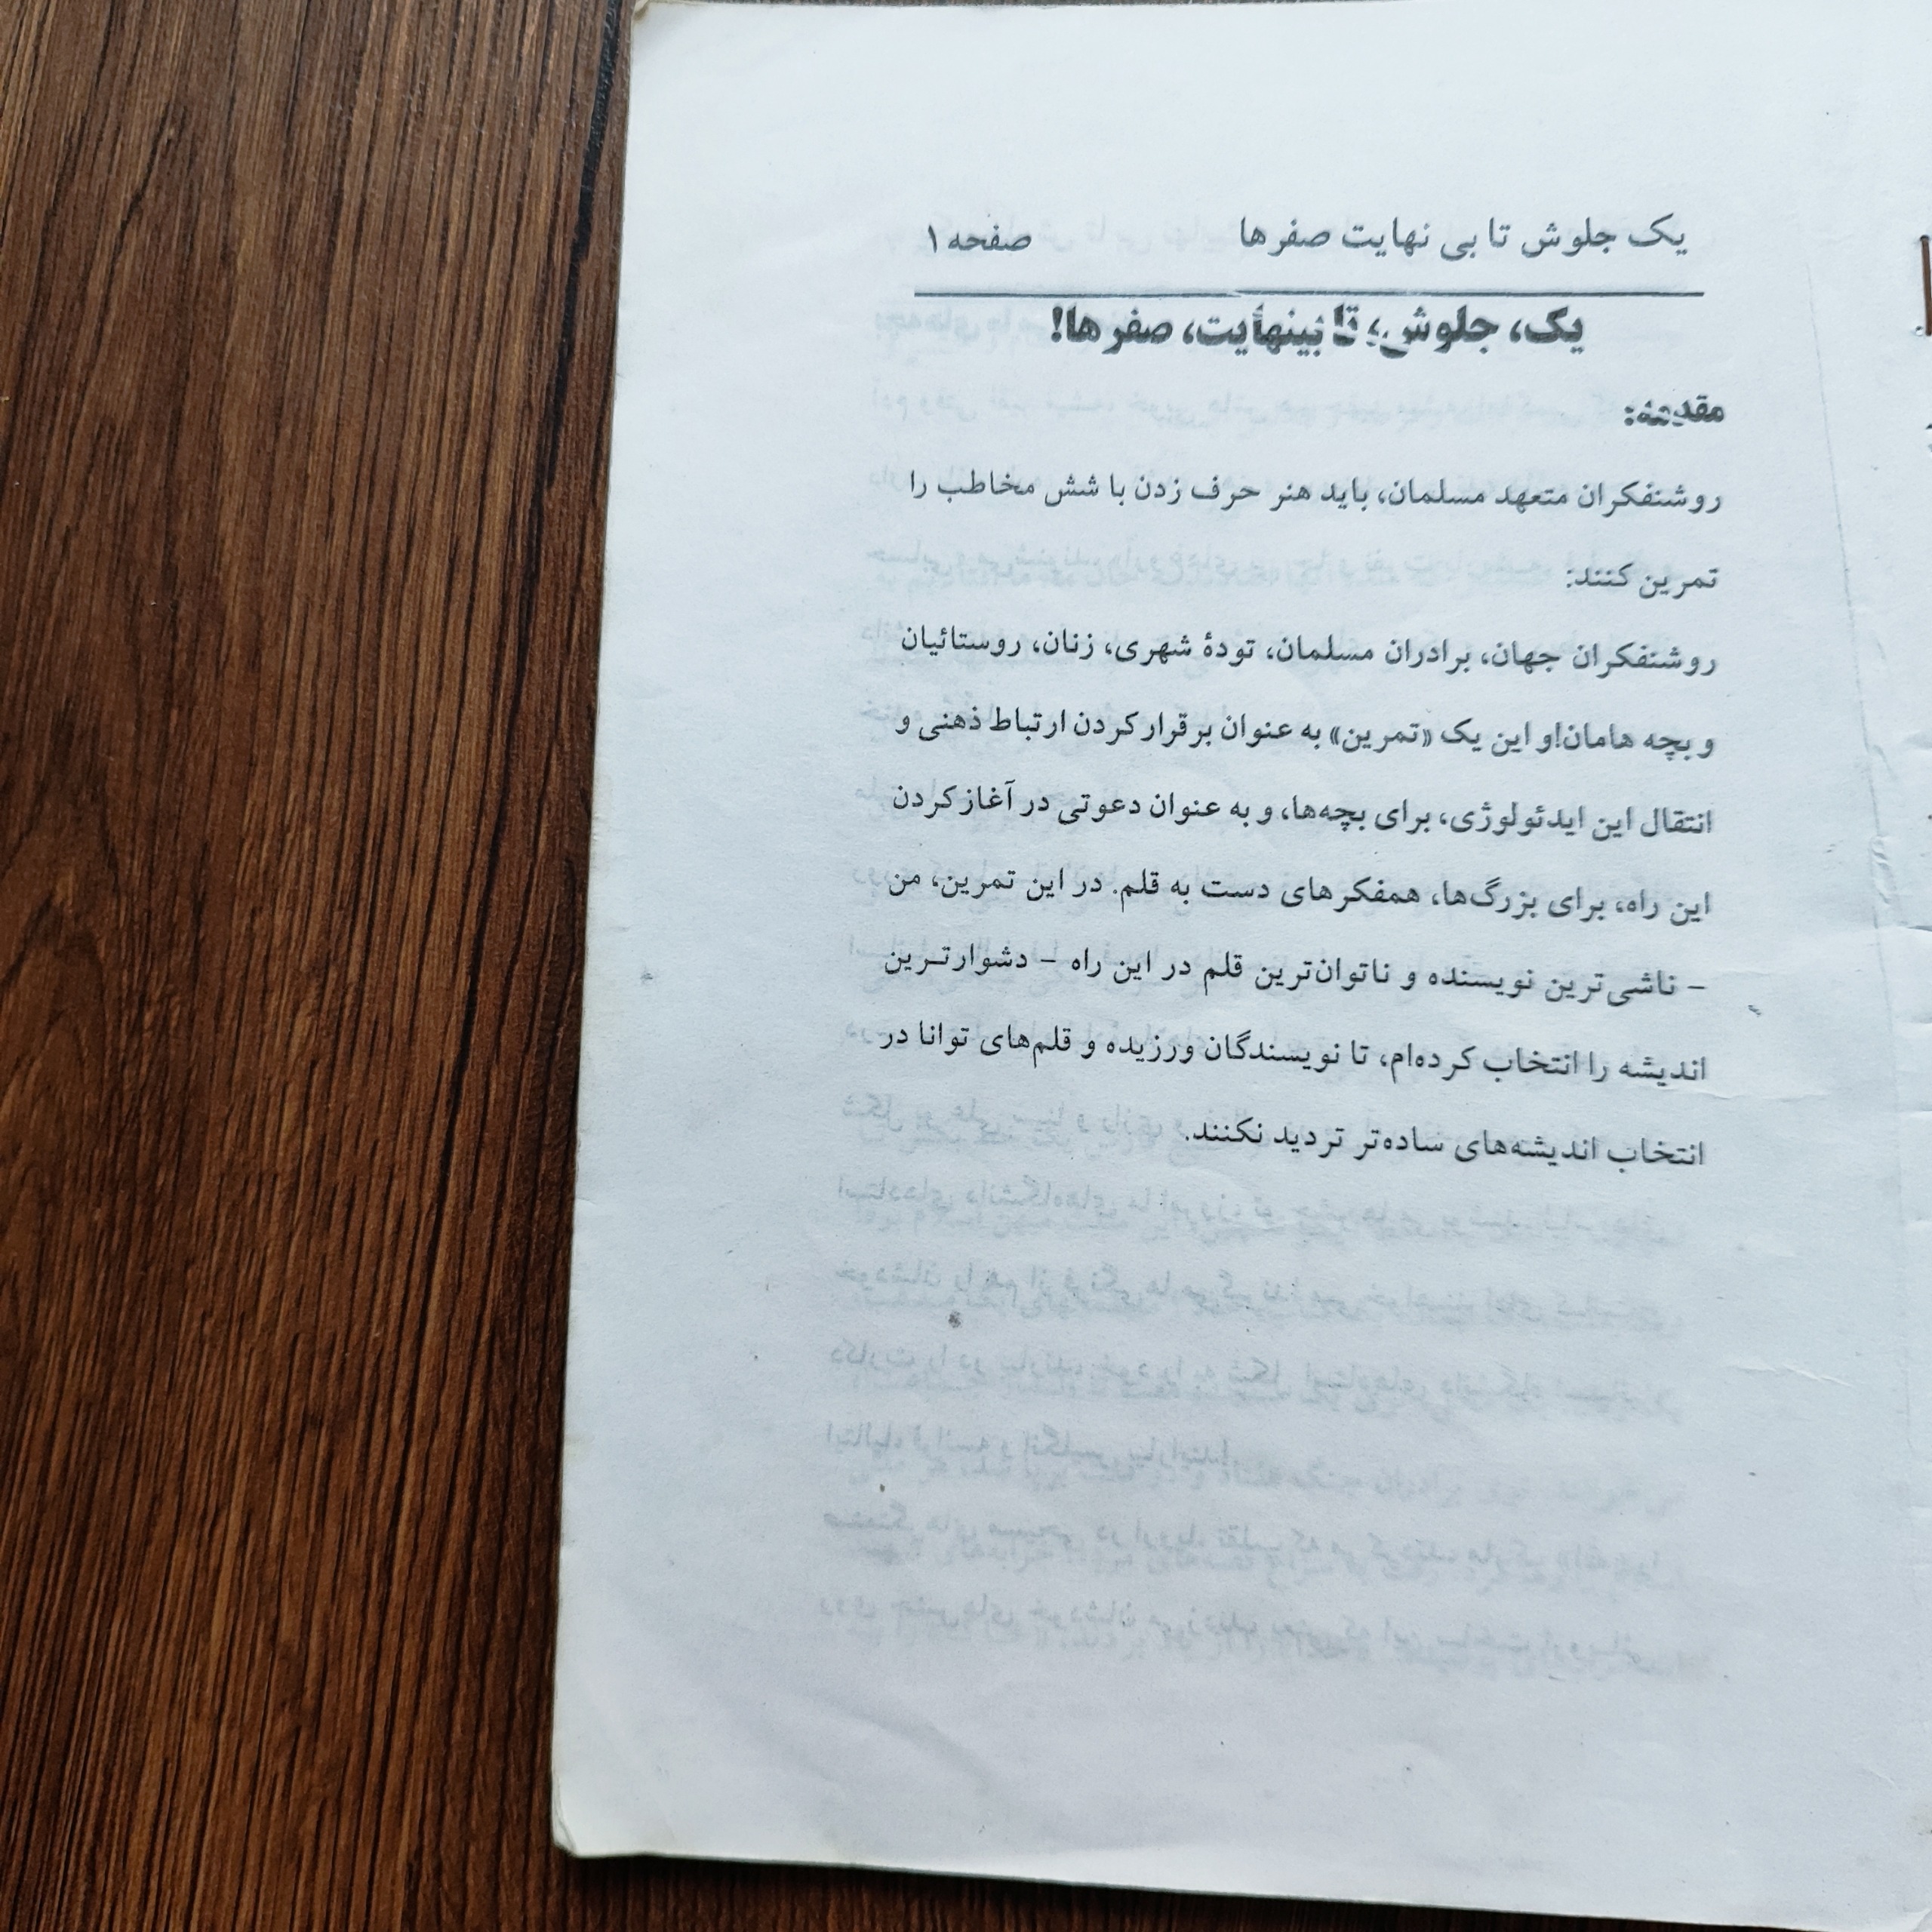 یک جلوش تا بی نهایت صفر ها صفحه ۱
یک، جلوش؛ تا بینهایت، صفر ها!
مقدمه:
روشنفکران متعهد مسلمان، باید هنر حرف زدن با شش مخاطب را
تمرین کنند:
روشنفکران جهان، برادران مسلمان، تودهٔ شهری، زنان، روستائیان
و بچه هامان!و این یک «تمرین» به عنوان برقرار کردن ارتباط ذهنی و
انتقال این ایدئولوژی، برای بچه‌ها، و به عنوان دعوتی در آغاز کردن
این راه، برای بزرگ‌ها، همفکرهای دست به قلم. در این تمرین، من
– ناشی‌ترین نویسنده و ناتوان‌ترین قلم در این راه – دشوارتـرین
اندیشه را انتخاب کرده‌ام، تا نویسندگان ورزیده و قلم‌های توانا در
انتخاب اندیشه‌های ساده‌تر تردید نکنند.